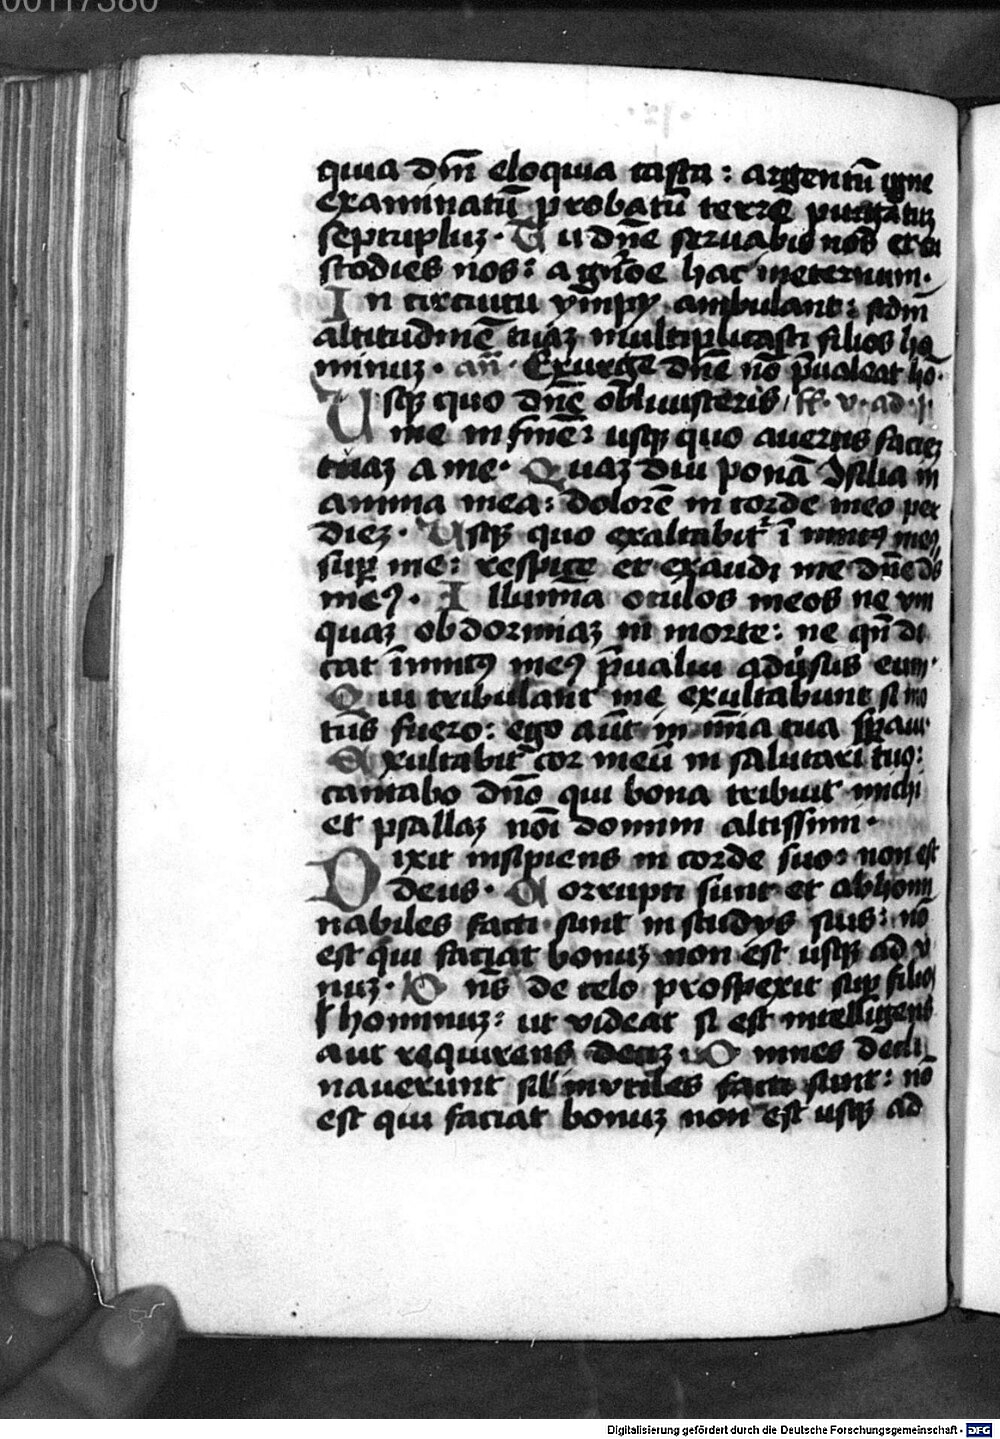 00117380
quia dm̄ eloquia casta : argentū igne
examinatū probatū terre purgatuʒ
septupluʒ · Tu dn̄e seruabis nos et cu
stodies nos : a gn̄oe hac in eternum ·
In circuitu ympy ambulant : scdm̄
altitudinē tuaʒ multiplicasti filios ho
minuʒ · an̄ · Exurge dn̄e nō p̄ualeat ho ·
Usqʒ quo dn̄e obliuisceris
me in finē : usqʒ quo auertis facieʒ
tuaʒ a me · Quaʒ diu ponā ꝯsilia in
anima mea : dolorē in corde meo per
dieʒ · Usqʒ quo exaltabit᷑ īimicꝰ meꝰ
suꝑ me : respice et exaudi me dn̄e ds̄
meꝰ · Illumīa oculos meos ne vm
quaʒ obdormiaʒ in morte : ne qn̄ di
cat īimicꝰ meꝰ p̄ualui aduʾsus eum ·
Qui tribulant me exultabunt si mo
tus fuero : ego aūt in mīa tua sꝑaui ·
Exultabit᷑ cor meū in salutari tuo :
cantabo dn̄o qui bona tribuit michi
et psallaʒ noī domini altissimi ·
Dixit insipiens in corde suo : non est
deus · Corrupti sunt et abhomi
nabiles facti sunt in studys suis : nō
est qui faciat bonuʒ non est usqʒ ad v
nuʒ · Dn̄s de celo prospexit suꝑ filios
hominuʒ : ut videat si est intelligens
aut requirens deuʒ · Omnes decli
nauerunt sil̄ inutiles facti sunt : nō
est qui faciat bonuʒ non est usqʒ ad
Digitalisierung gefördert durch die Deutsche Forschungsgemeinschaft - DFG